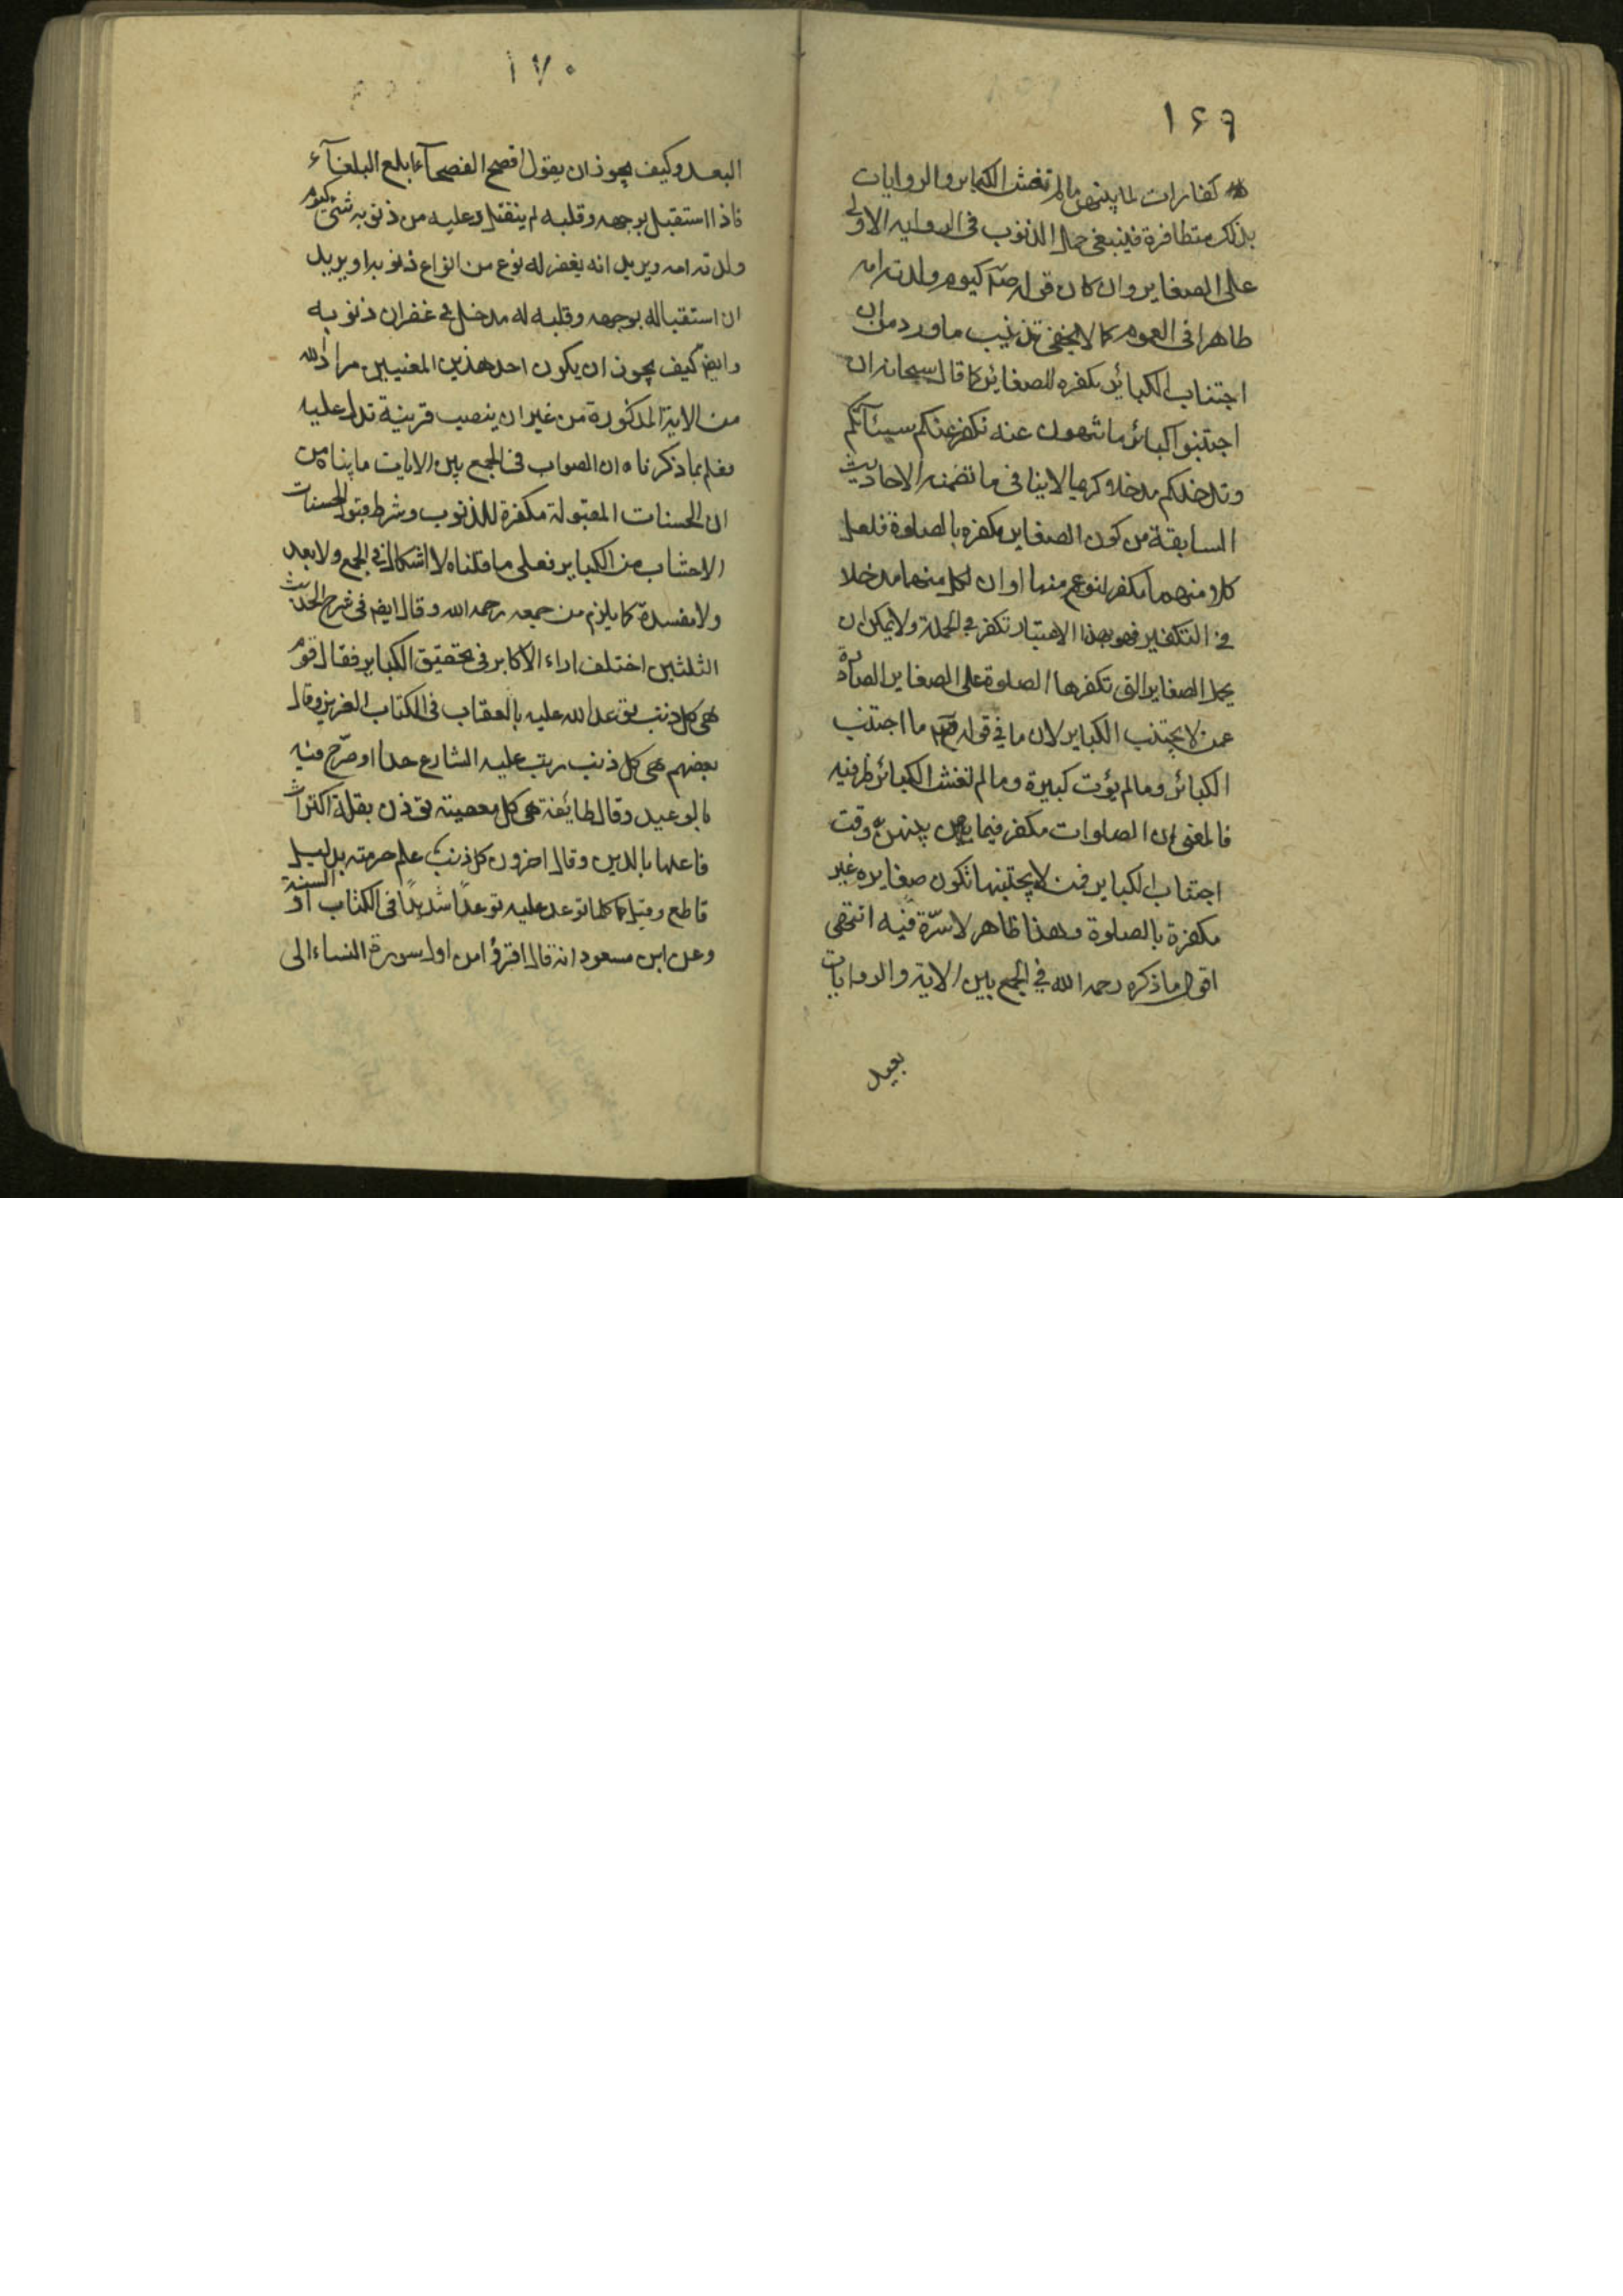 ١۶٩
كفارات لما بينهن ما لم تغش الكباير والروايات
بذلك متظافرة فينبغى حمل الذنوب فى الروايه الاولى
على الصغاير وان كان قوله كيوم ولدته امه
ظاهرا فى العموم كما لا يخفى تذنيب ما ورد من ان
اجتناب الكبائر مكفره للصغائر كما قال سبحانه ان
اجتنبوا كبائر ما تنهون عنه نكفر عنكم سيئاتكم
وندخلكم مدخلا كريما لا ينافى ما تضمنه الاحاديث
السابقة من كون الصغاير مكفره بالصلوة فلعل
كلا منهما مكفر لنوع منها او ان لكل منهما مدخلا
فى التكفير فهو بهذا الاعتبار تكفر فى الجملة ولا يمكن ان
يحمل الصغاير التى تكفرها الصلوة على الصغاير الصادرة
عمن لا يجتنب الكباير لان ما فى قوله ما اجتنب
الكبائر وما لم يؤت كبيرة وما لم تغش الكبائر ظرفيه
فالمعنى ان الصلوات مكفر فيما بينهن وقت
اجتناب الكباير فمن لا يجتنبها تكون صغايره غير
مكفرة بالصلوة وهذا ظاهر لا سترة فيه انتهى
اقول ما ذكره رحمه الله فى الجمع بين الاية والروايات
بعيد
١٧٠
البعد وكيف يجوز ان يقول افصح الفصحآء ابلغ البلغآء
فاذا استقبل بوجهه وقلبه لم ينفتل وعليه من ذنوبه شئ كيوم
ولدته امه ويريد انه يغفر له نوع من انواع ذنوبه او يريد
ان استقباله بوجهه وقلبه له مدخل فى غفران ذنوبه
وايض كيف يجوز ان يكون احد هذين المعنيين مراد الله
من الاية المذكورة من غير ان ينصب قرينة تدل عليه
فعلم بما ذكرناه ان الصواب فى الجمع بين الايات ما بيناه من
ان الحسنات المقبولة مكفرة للذنوب وشرط قبول الحسنات
الاجتناب من الكباير فعلى ما قلناه لا اشكال فى الجمع ولا بعد
ولا مفسدة كما يلزم من جمعه رحمه الله وقال ايض فى شرح الحديث
الثلثين اختلف اراء الاكابر فى تحقيق الكباير فقال قوم
هى كل ذنب توعد الله عليه بالعقاب فى الكتاب العزيز وقال
بعضهم هى كل ذنب رتب عليه الشارع حدا او صرح فيه
بالوعيد وقال طائفة هى كل معصية تؤذن بقلة اكتراث
فاعلها بالدين وقال اخرون كل ذنب علم حرمته بدليل
قاطع وقيل كلما توعد عليه توعدا شديدا فى الكتاب او السنة
وعن ابن مسعود انه قال اقرؤا من اول سورة النساء الى